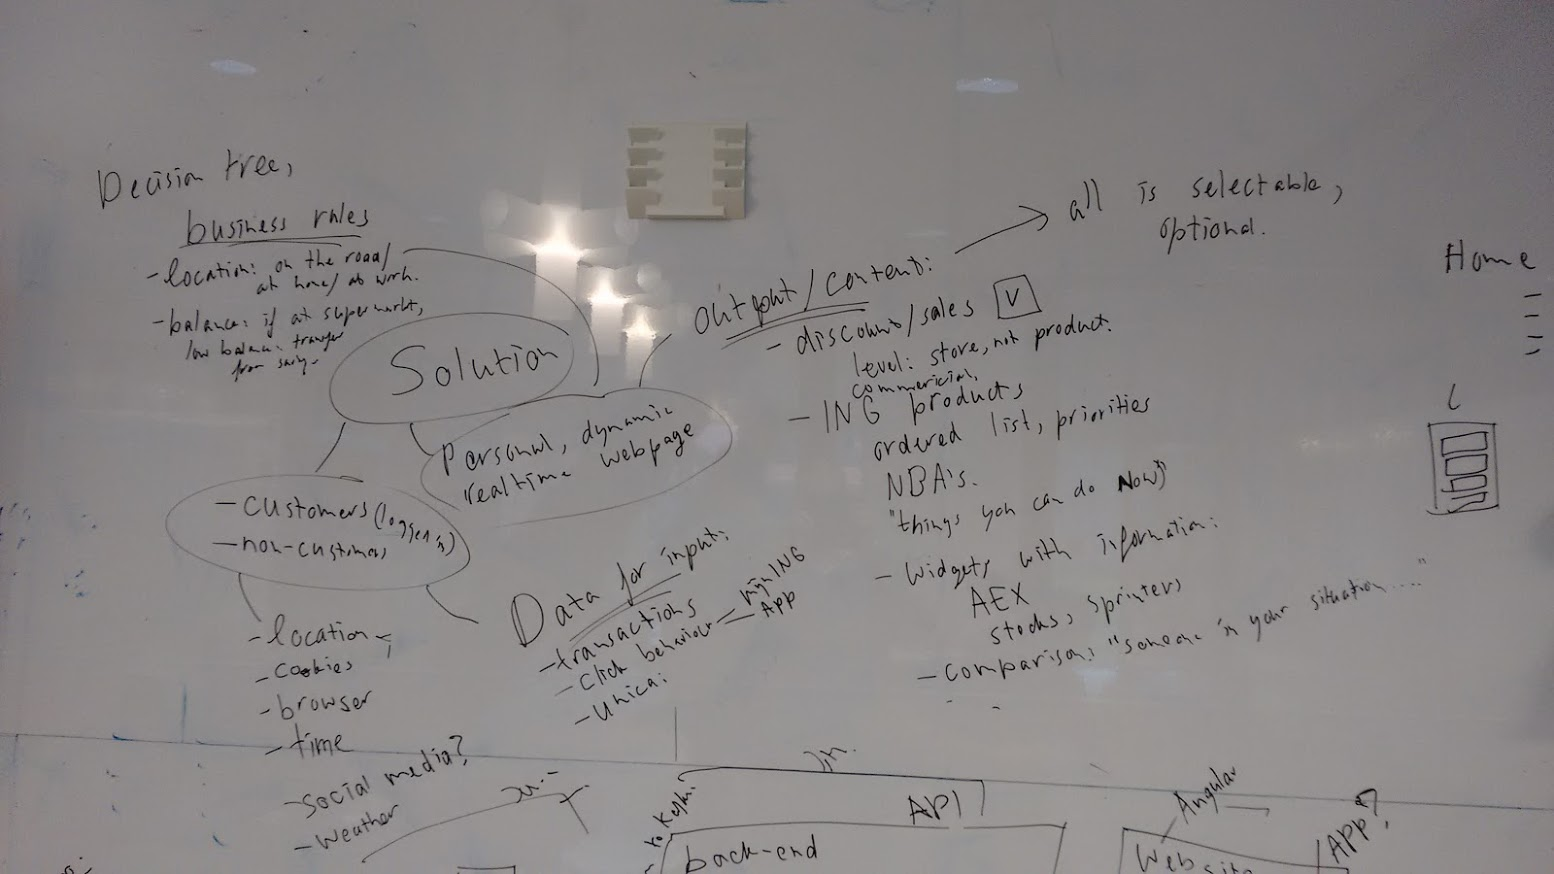 Decision tree,
business rules
- location: on the road/
at home/ at work.
- balance: if at supermarkt,
low balance: transfer
from
Solution
Personal, dynamic
realtime webpage
- customers (logged in)
- non-customers
- location
- cookies
- browser
- time
- social media?
- weather
Data for input:
- transactions
- click behaviour - mijnING
- APP
- Unica:
output/content:
- discounts/sales V
level: store, not product.
commericial,
- ING products
ordered list, priorities
NBA's.
"things you can do NOW"
- Widgets with information:
AEX
stocks, sprinters
- comparison: "someone in your situation...."
all is selectable,
optional.
Home
API
back-end
Angular
Website
APP?